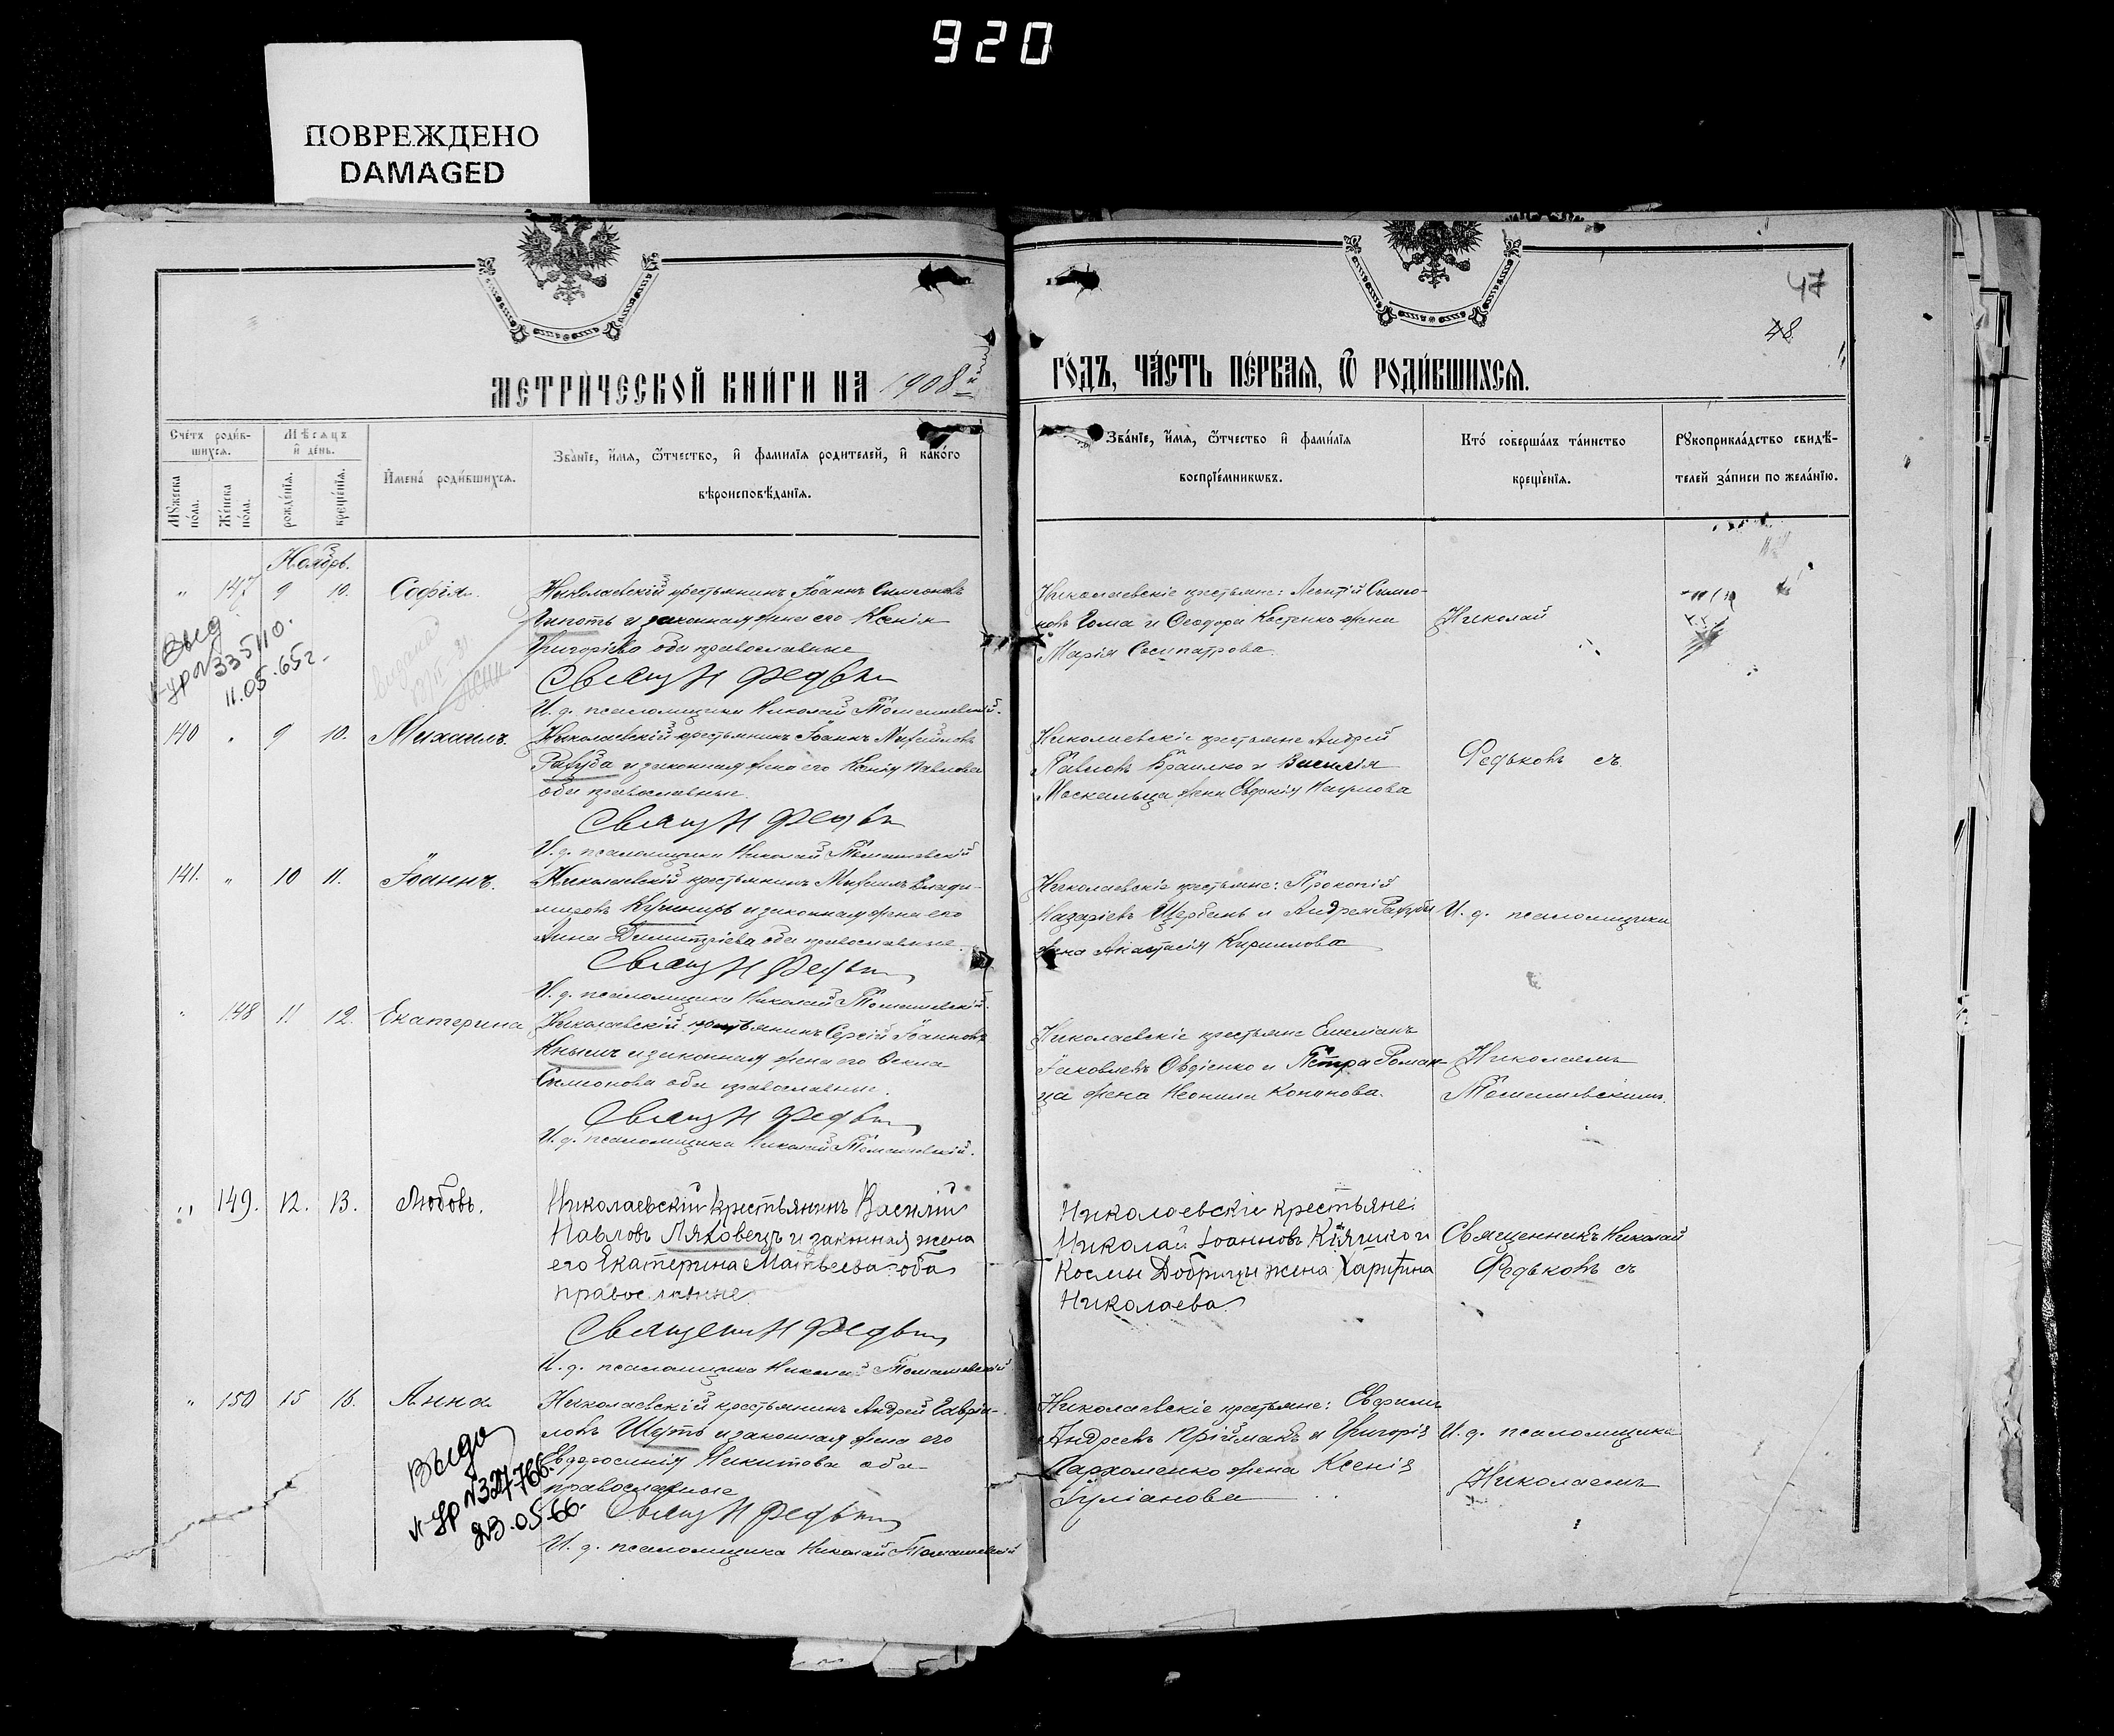 920
ПОВРЕЖДЕНО
DAMAGED
47
48
МЕТРИЧЕСКОЙ КНИГИ НА 1908
ГОДЪ, ЧАСТЬ ПЕРВАЯ, Ѿ РОДИВШИХСЯ.
Счетъ родив-
шихся.
Мѣсяцъ
и день.
Мужеска
пола.
Женска
пола.
рожденія.
крещенія.
Имена родившихся.
Званіе, имя, ѿчество, и фамилія родителей, и какого
вѣроисповѣданія.
Званіе, имя, ѿчество и фамилія
воспріемниковъ.
Кто совершалъ таинство
крещенія.
Рукоприкладство свидѣ-
телей записи по желанію.
Ноябрь.
" 147 9 10. Софія.
Николаевскій крестьянинъ Іоаннъ Симеоновъ
и законная жена его Ксенія
Григоріева оба православные
Свящ Н Федьк
И. д. псаломщика Николай Томашевскій.
Николаевскіе крестьяне: Леонтій Симео-
новъ Гома и Ѳеодора Костенко жена
Марія Сосипатрова.
Николай
Выд
335110.
11.05.65г.
140 " 9 10. Михаилъ.
Николаевскій крестьянинъ Іоаннъ Михайловъ
Рагуба и законная жена его Ксенія Павлова
оба православные
Свящ Н Федьк
И. д. псаломщика Николай Томашевскій
Николаевскіе крестьяне Андрей
Павловъ Браилко и Василія
Москальца жена Евдокія Наумова
Федьковъ съ
141. " 10 11. Іоаннъ.
Николаевскій крестьянинъ Михаилъ Влади-
мировъ Кушниръ и законная жена его
Анна Димитріева оба православные
Свящ Н Федьк
И. д. псаломщика Николай Томашевскій.
Николаевскіе крестьяне: Прокопій
Назаріевъ Щербань и Андрея Рагубы
жена Анастасія Кириллова
И. д. псаломщика
" 148 11 12. Екатерина
Николаевскій крестьянинъ Сергій Іоанновъ
Кнышъ и законная жена его Ѳекла
Симеонова оба православные.
Свящ Н Федьк
И. д. псаломщика Николай Томашевскій.
Николаевскіе крестьяне Емеліанъ
Іаковлевъ Овдіенко и Петра Роман-
ца жена Неонила Кононова.
Николаемъ
Томашевскимъ.
" 149. 12. 13. Любовь.
Николаевскій крестьянинъ Василій
Павловъ Ляховецъ и законная жена
его Екатерина Матвѣева оба
православные.
Священн Н Федьк
И. д. псаломщика Николай Томашевскій
Николаевскіе крестьяне:
Николай Іоанновъ Кіяшко и
Космы Добрицы жена Харитина
Николаева
Священникъ Николай
Федьковъ съ
" 150 15 16. Анна
Николаевскій крестьянинъ Андрей Гаврии-
ловъ Шутъ и законная жена его
Евфросинія Никитова оба
православные
Свящ Н Федьк
И. д. псаломщика Николай Томашевскій
Николаевскіе крестьяне: Евфимъ
Андреевъ Пріймакъ и Григорія
Пархоменко жена Ксенія
Іуліанова
И. д. псаломщика
Николаемъ
Выда
№327766.
23.05.66.